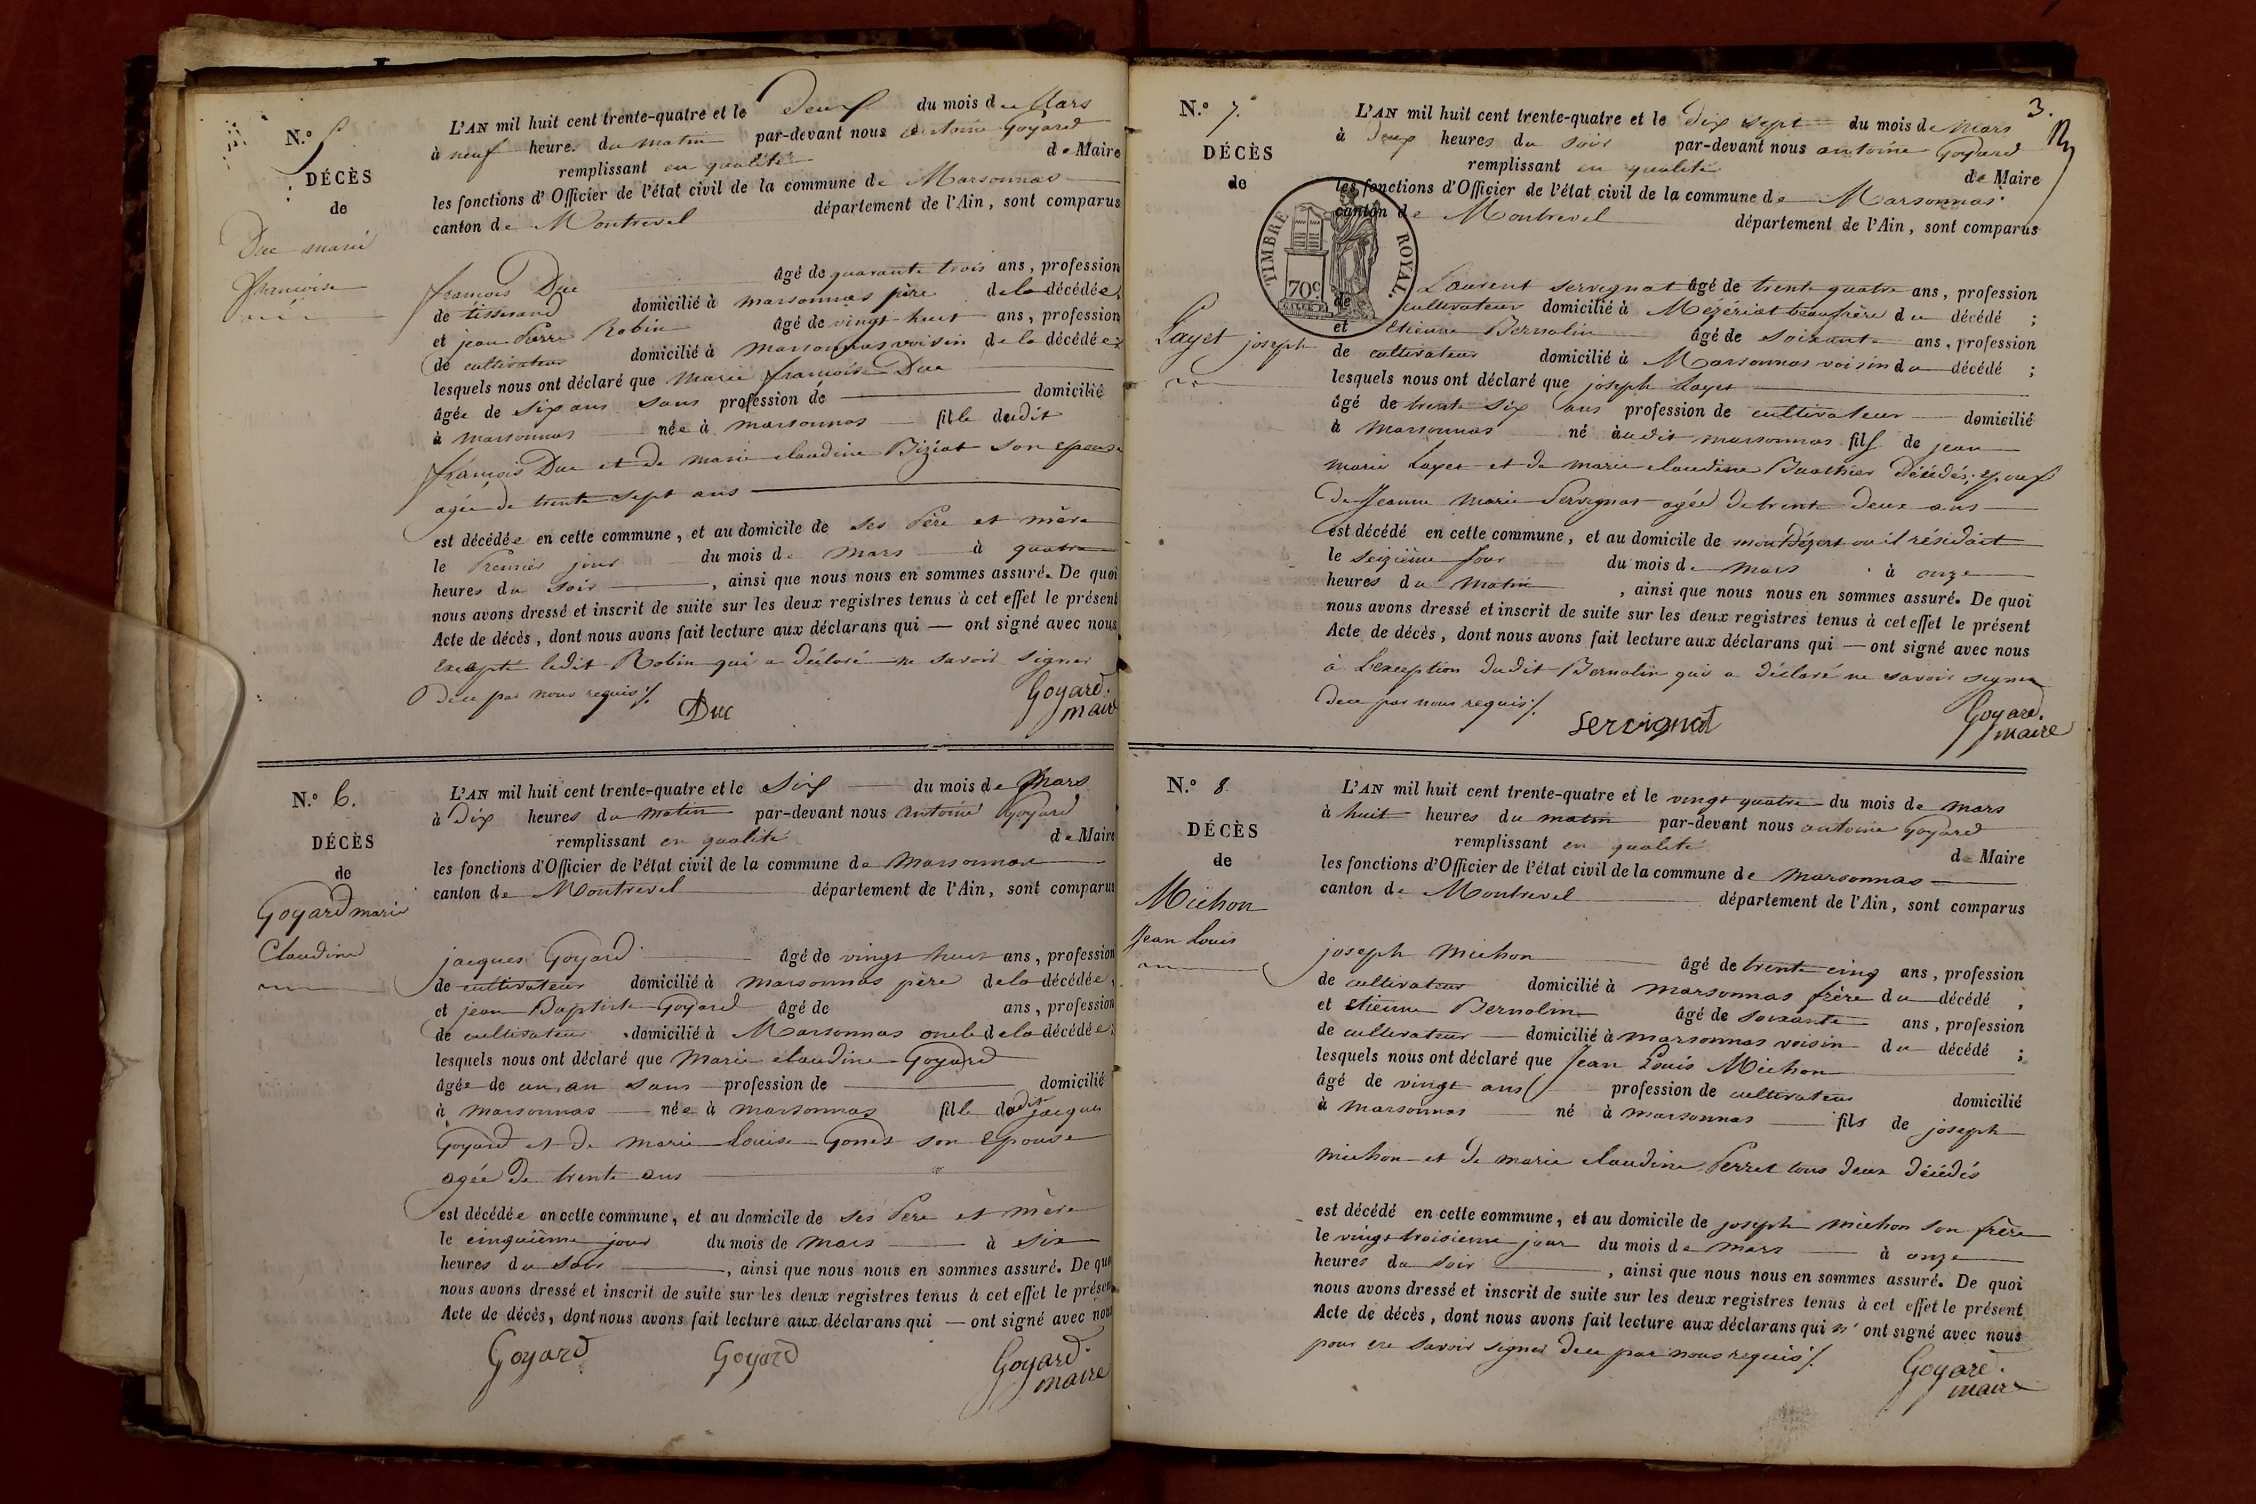 N.º 5
DÉCÈS
de
Duc marie
françoise
L'AN mil huit cent trente-quatre et le Deux du mois de Mars
à neuf heures du matin par-devant nous antoine Goyard
remplissant en qualité de Maire
les fonctions d'Officier de l'état civil de la commune de Marsonnas
canton de Montrevel département de l'Ain, sont comparus
françois Duc âgé de quarante trois ans, profession
de tisserand domicilié à marsonnas père de la décédée,
et jean Pierre Robin âgé de vingt-huit ans, profession
de cultivateur domicilié à marsonnas voisin de la décédée;
lesquels nous ont déclaré que Marie françoise Duc
âgée de six ans sans profession de domicilié
à marsonnas née à marsonnas fille dudit
françois Duc et de marie claudine Biziat son epouse
agée de trente sept ans
est décédée en cette commune, et au domicile de ses Père et mère
le Premier jour du mois de mars à quatre
heures du soir, ainsi que nous nous en sommes assuré. De quoi
nous avons dressé et inscrit de suite sur les deux registres tenus à cet effet le présent
Acte de décès, dont nous avons fait lecture aux déclarans qui — ont signé avec nous
Excepté ledit Robin qui a déclaré ne savoir signer
Dece par nous requis ⁒
Duc
Goyard.
maire
N.º 6.
DÉCÈS
de
Goyard marie
Claudine
L'AN mil huit cent trente-quatre et le Six du mois de Mars
à Dix heures du matin par-devant nous antoine Goyard
remplissant en qualité de Maire
les fonctions d'Officier de l'état civil de la commune de Marsonnas
canton de Montrevel département de l'Ain, sont comparus
jacques Goyard âgé de vingt huit ans, profession
de cultivateur domicilié à marsonnas père de la décédée,
et jean Baptiste Goyard âgé de ans, profession
de cultivateur domicilié à Marsonnas oncle de la décédée;
lesquels nous ont déclaré que Marie claudine Goyard
âgée de un an sans profession de domicilié
à marsonnas née à marsonnas fille dudit jacques
Goyard et de marie Louise Gonet son epouse
agée de trente ans
est décédée en cette commune, et au domicile de ses Père et mère
le cinquième jour du mois de mars à six
heures du soir, ainsi que nous nous en sommes assuré. De quoi
nous avons dressé et inscrit de suite sur les deux registres tenus à cet effet le présent
Acte de décès, dont nous avons fait lecture aux déclarans qui — ont signé avec nous
Goyard Goyard
Goyard.
maire
3.
N.º 7.
DÉCÈS
de
Layet joseph
TIMBRE ROYAL.
70 c.
L'AN mil huit cent trente-quatre et le dix sept du mois de Mars
à deux heures du soir par-devant nous antoine Goyard
remplissant en qualité de Maire
les fonctions d'Officier de l'état civil de la commune de Marsonnas
canton de Montrevel département de l'Ain, sont comparus
Laurent servignat âgé de trente quatre ans, profession
de cultivateur domicilié à Mézériat beaufrère du décédé;
et Etienne Bernolin âgé de soixante ans, profession
de cultivateur domicilié à Marsonnas voisin du décédé;
lesquels nous ont déclaré que joseph Layet
âgé de trente six ans profession de cultivateur domicilié
à Marsonnas né audit marsonnas fils de jean
marie Layet et de marie claudine Buathier Décédés; epoux
de Jeanne Marie Servignat agée de trente deux ans
est décédé en cette commune, et au domicile de montdézert ou il résidait
le seizième jour du mois de mars à onze
heures du matin, ainsi que nous nous en sommes assuré. De quoi
nous avons dressé et inscrit de suite sur les deux registres tenus à cet effet le présent
Acte de décès, dont nous avons fait lecture aux déclarans qui — ont signé avec nous
à Lexception dudit Bernolin qui a déclaré ne savoir signer
Dece par nous requis ⁒
servignat
Goyard.
maire
N.º 8
DÉCÈS
de
Michon
Jean Louis
L'AN mil huit cent trente-quatre et le vingt quatre du mois de mars
à huit heures du matin par-devant nous antoine Goyard
remplissant en qualité de Maire
les fonctions d'Officier de l'état civil de la commune de marsonnas
canton de Montrevel département de l'Ain, sont comparus
joseph Michon âgé de trente cinq ans, profession
de cultivateur domicilié à marsonnas frère du décédé,
et Etienne Bernolin âgé de soixante ans, profession
de cultivateur domicilié à marsonnas voisin du décédé;
lesquels nous ont déclaré que Jean Louis Michon
âgé de vingt ans profession de cultivateur domicilié
à marsonnas né à marsonnas fils de joseph
michon et de marie claudine Perret tous deux décédés
est décédé en cette commune, et au domicile de joseph michon son frère
le vingt troisieme jour du mois de mars à onze
heures du soir, ainsi que nous nous en sommes assuré. De quoi
nous avons dressé et inscrit de suite sur les deux registres tenus à cet effet le présent
Acte de décès, dont nous avons fait lecture aux déclarans qui n'ont signé avec nous
pour ne savoir signer dece par nous requis ⁒
Goyard.
maire